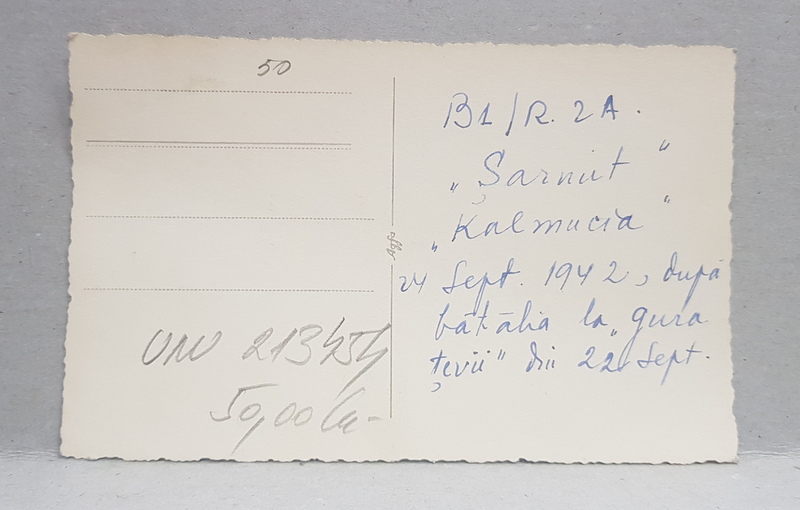 50
B1/R. 2A.
„Șarnut"
„Kalmucia"
24 Sept. 1942, după
bătălia la „gura
țevii" din 22 Sept.
Agfa
50,00 lei